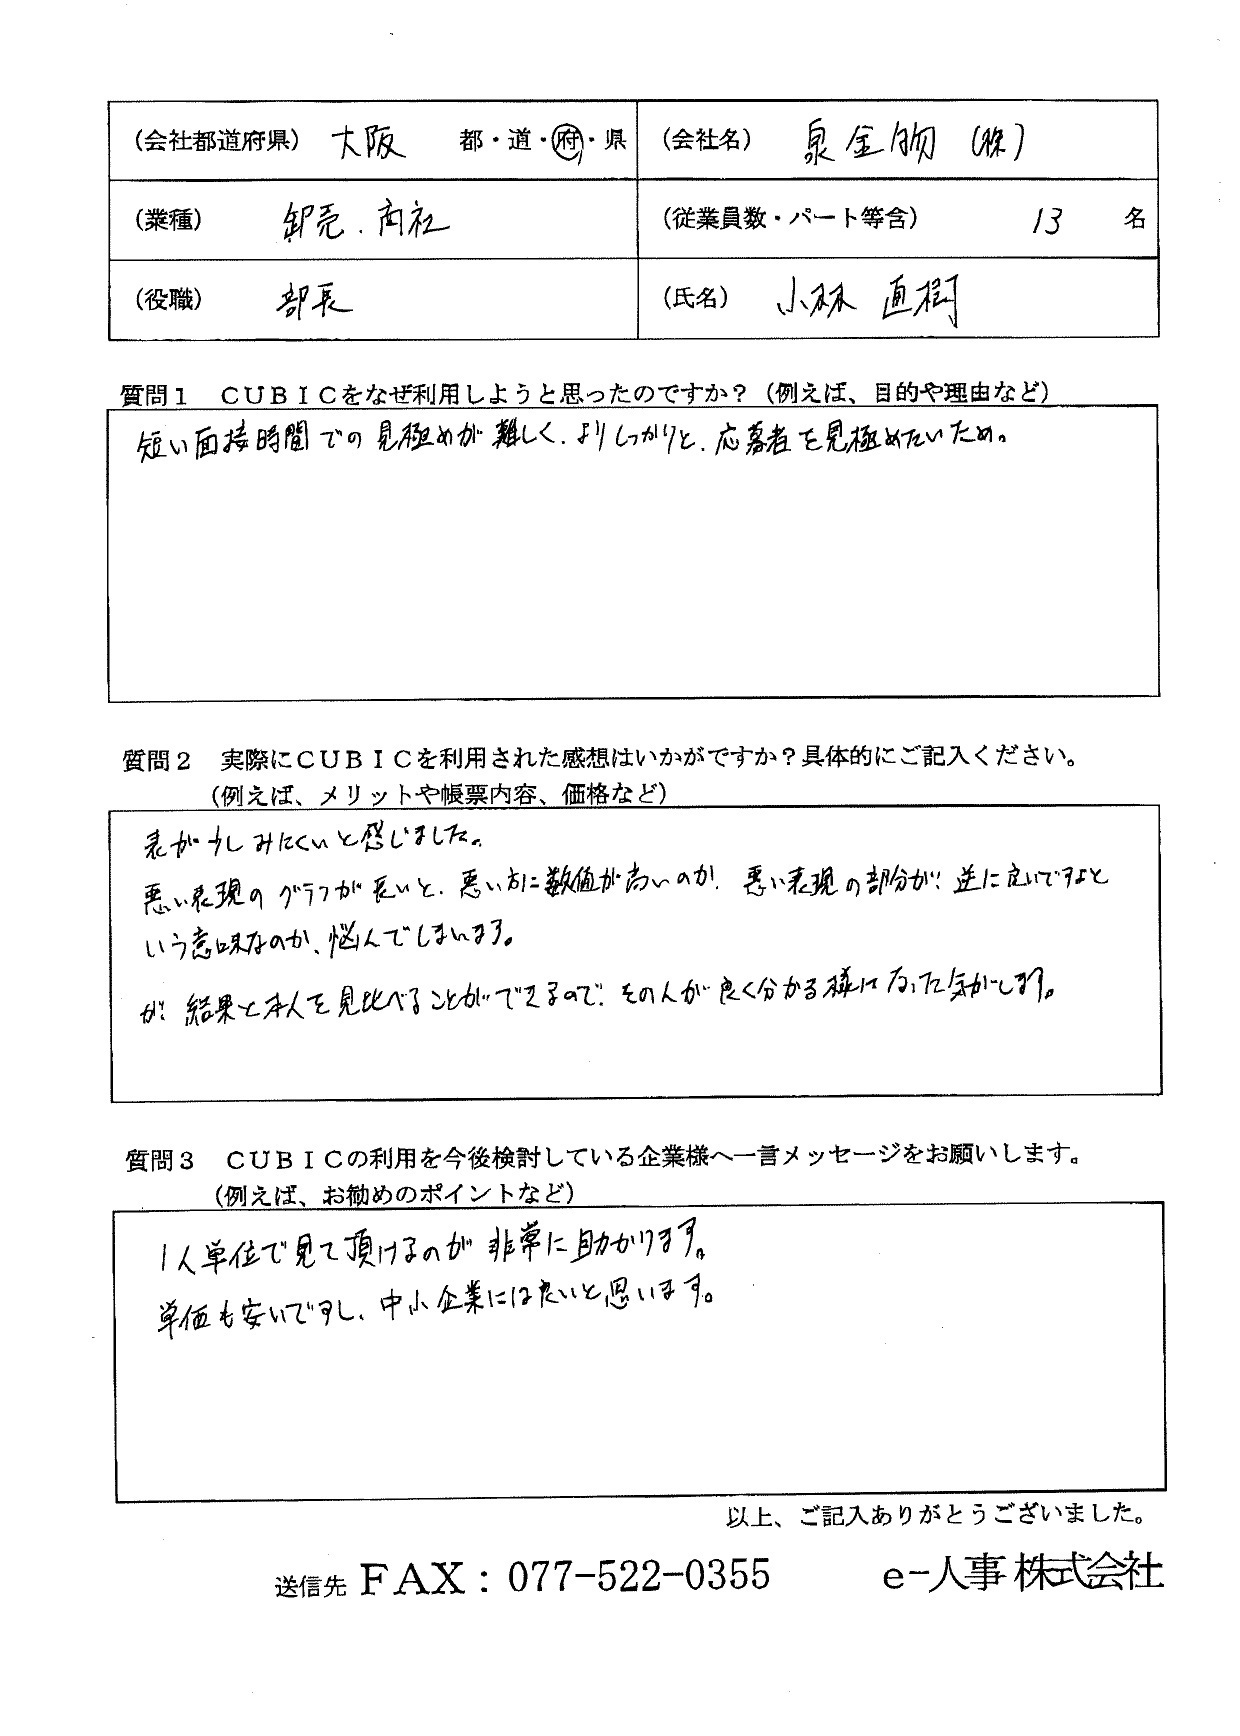 （会社都道府県） 大阪 都・道・府・県 （会社名） 泉金物（株）
（業種） 卸売．商社 （従業員数・パート等含） 13 名
（役職） 部長 （氏名） 小林 直樹
質問１　ＣＵＢＩＣをなぜ利用しようと思ったのですか？（例えば、目的や理由など）
短い面接時間での見極めが難しく、よりしっかりと、応募者を見極めたいため。
質問２　実際にＣＵＢＩＣを利用された感想はいかがですか？具体的にご記入ください。
（例えば、メリットや帳票内容、価格など）
表が少しみにくいと感じました。
悪い表現のグラフが長いと、悪い方に数値が高いのか、悪い表現の部分が、逆に良いですよと
いう意味なのか、悩んでしまいます。
が、結果と本人を見比べることができるので、その人が良く分かる様になった気がします。
質問３　ＣＵＢＩＣの利用を今後検討している企業様へ一言メッセージをお願いします。
（例えば、お勧めのポイントなど）
1人単位で見て頂けるのが非常に助かります。
単価も安いですし、中小企業には良いと思います。
以上、ご記入ありがとうございました。
送信先 ＦＡＸ：077-522-0355 e-人事 株式会社